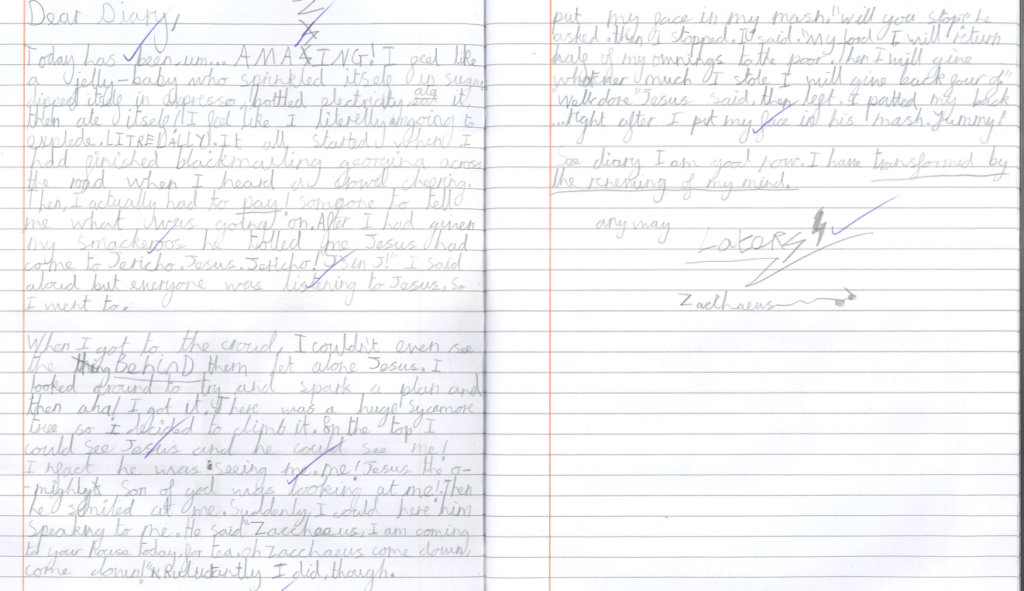 Dear Diary,
Today has been um... AMAZING! I feel like
a jelly-baby who sprinkled itself in sugar,
dipped itself in expresso, bottled electricity, ate it,
then ate itself! I feel like I literelly am going to
explode. LITREDALLY! It all started when I
had finished blackmailing georging across
the road when I heard a crowd cheering.
Then, I actually had to pay! someone to tell
me what was going on. After I had given
my smackeroos he tolled me Jesus had
come to Jericho. Jesus. Jericho! "J's in J!" I said
aloud but everyone was listening to Jesus, so
I went to.
When I got to the croud, I couldn't even see
the thing BEHIND them let alone Jesus. I
looked around to try and spark a plan and
then aha! I got it. There was a huge sycamore
tree, so i decided to climb it. On the top I
could see Jesus and he could see me!
I nfact he was seeing me. me! Jesus the o-
-mighty Son of god was looking at me! Then
he smiled at me. Suddenly, I could here him
speaking to me. He said "Zacchaeus, I am coming
to your house today, for tea. oh Zacchaeus come down,
come down!" Reluctantly I did, though.
put my face in my mash. "will you stop" he
asked. then I stopped. I said. "My lord I will return
half of my ownings to the poor. Then I will give
whotever much I stole I will give back four of"
"well done" Jesus said, then left. I patted my back
...right after I put my face in his mash. Yummy!
See diary I am good now. I have transformed by
the renewing of my mind.
any way
Laters
Zacchaeus